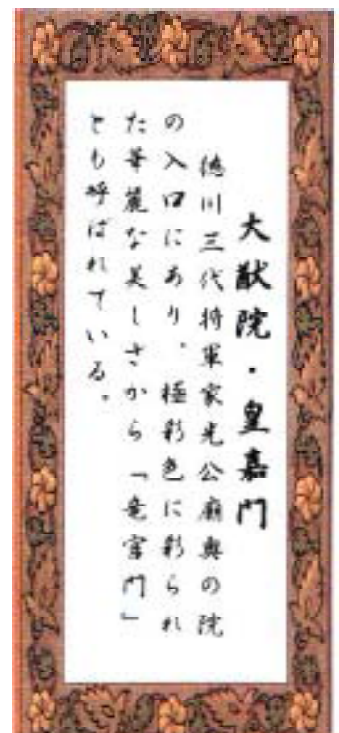 大猷院・皇嘉門
徳川三代将軍家光公廟奥の院
の入口にあり、極彩色に彩られ
た華麗な美しさから「竜宮門」
とも呼ばれている。